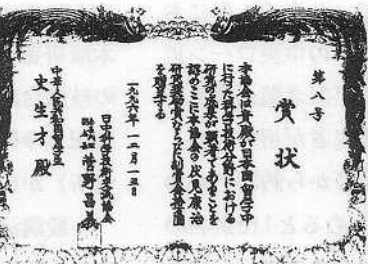 第八号
賞状
本協会は貴殿が日本国留学中
に行った科学技術分野における
研究の成果が顕著であることを
認めここに本協会の伏見康治
研究奨励賞ならびに賞金
を贈呈する
一九九六年 一二月一五日
日中科学技術交流協会
菅野昌義
中華人民共和国留学生
史生才 殿